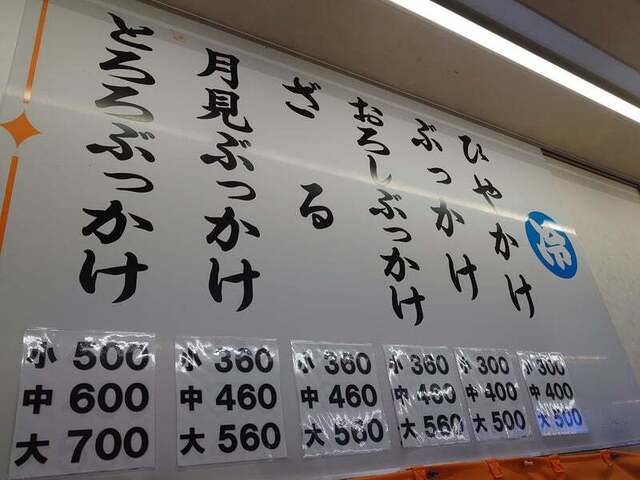 冷
ひやかけ
小 300
中 400
大 500
ぶっかけ
小 300
中 400
大 500
おろしぶっかけ
小 360
中 460
大 560
ざる
小 360
中 460
大 560
月見ぶっかけ
小 360
中 460
大 560
とろろぶっかけ
小 500
中 600
大 700